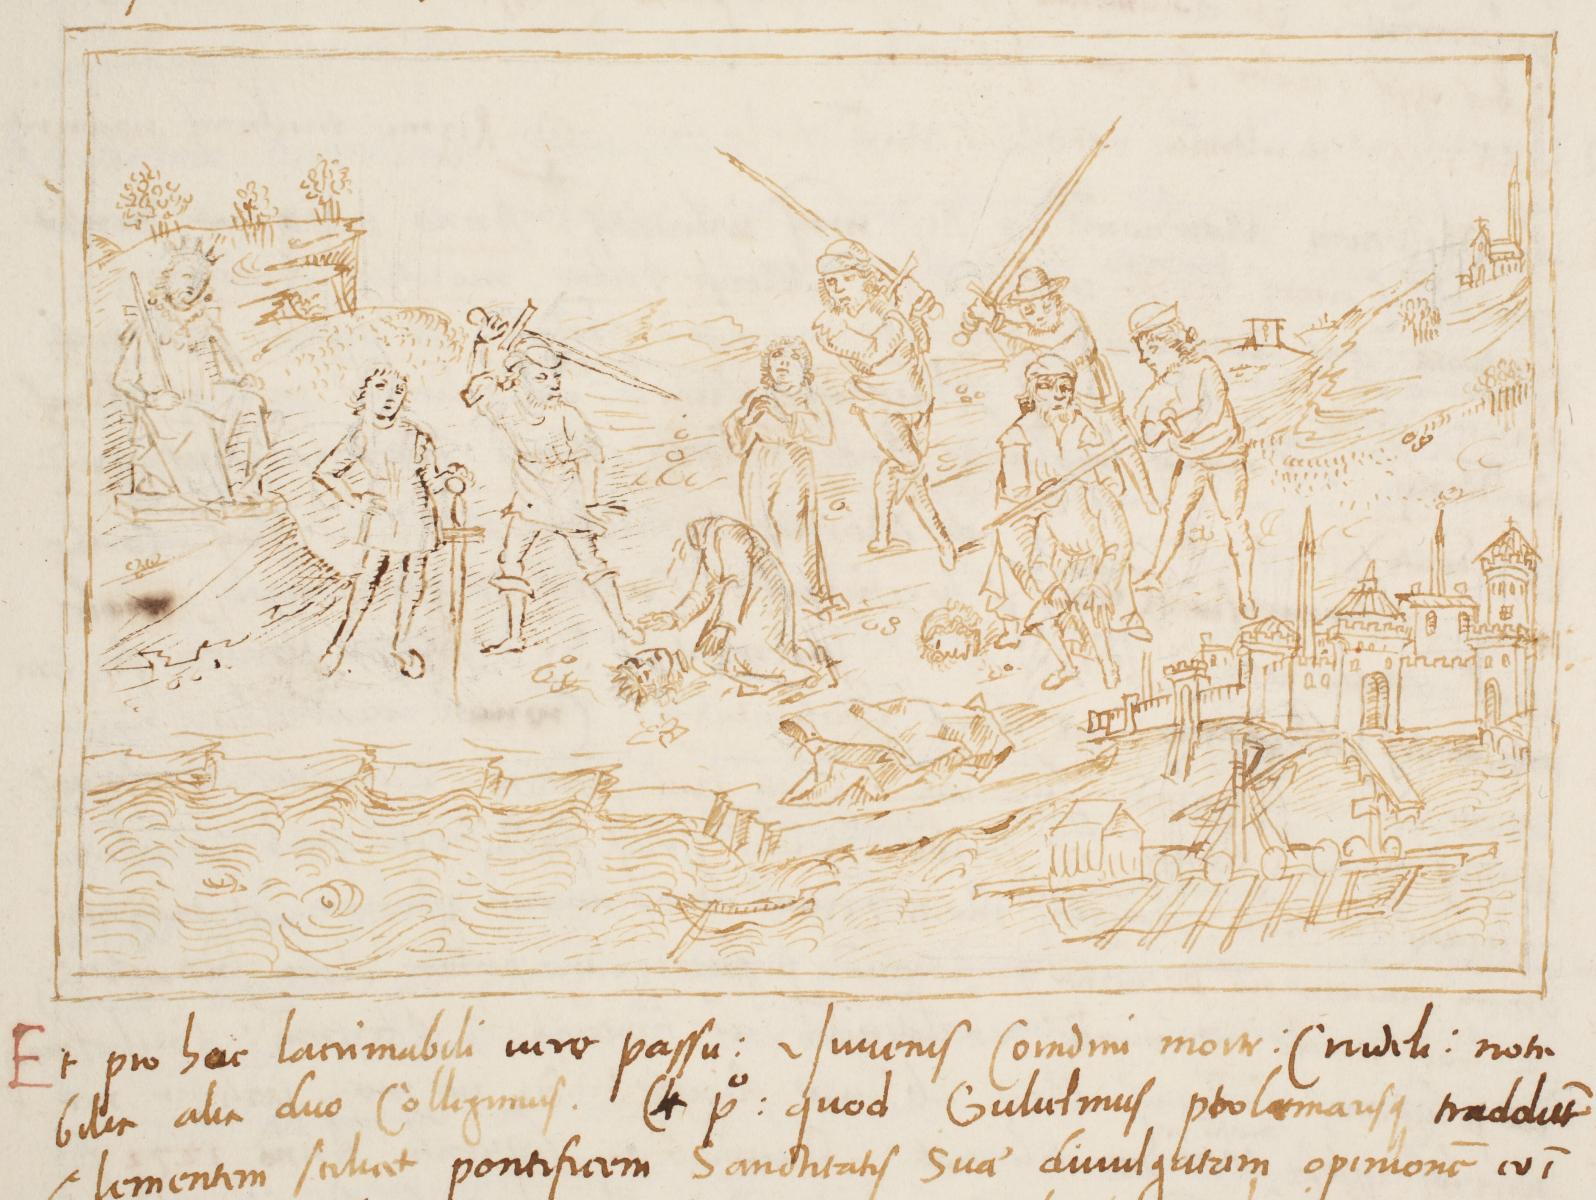 Et pro hac lacrimabili vere passu: Juvenis Coradini morte: Crudeli: nota
bilia alia duo Colligimus. p°: quod Gulielmus ptolemaeusq traddut
Clementem scilicet pontificem Sanctitatis Suae divulgatam opinionē